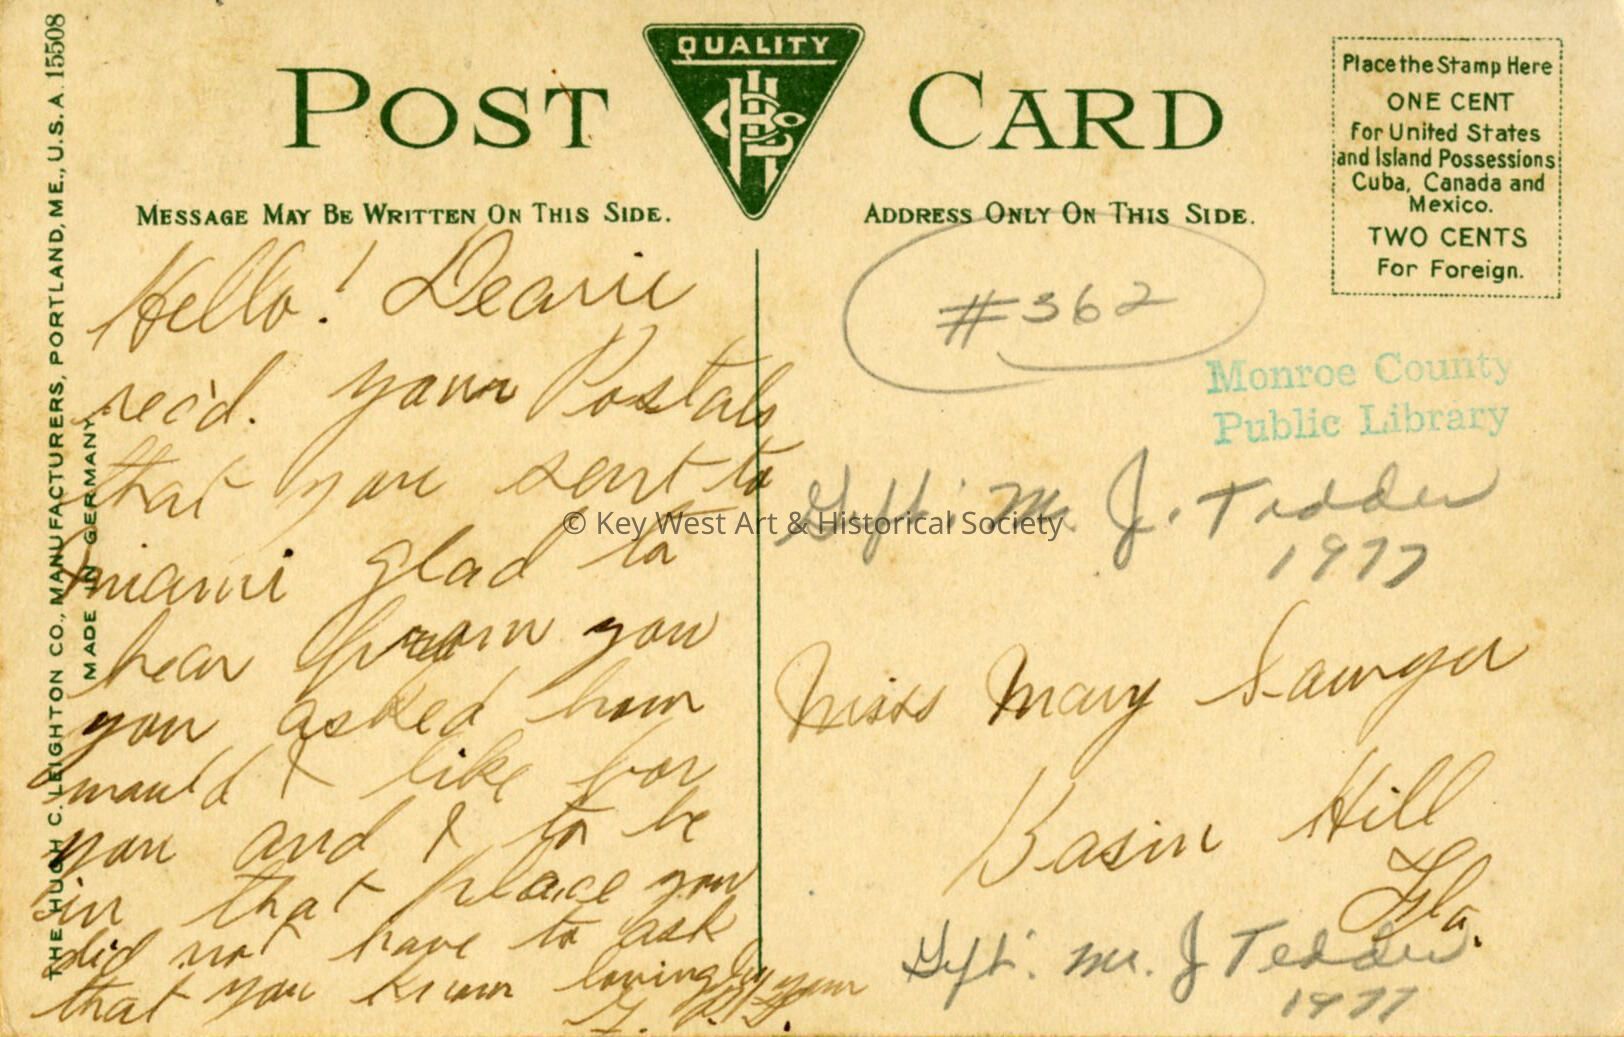 THE HUGH C. LEIGHTON CO., MANUFACTURERS, PORTLAND, ME., U.S.A. 15508
MADE IN GERMANY
POST CARD
QUALITY
MESSAGE MAY BE WRITTEN ON THIS SIDE.
ADDRESS ONLY ON THIS SIDE.
Place the Stamp Here
ONE CENT
for United States
and Island Possessions
Cuba, Canada and
Mexico.
TWO CENTS
For Foreign.
Hello! Dearie
rec'd. your Postals
that you sent to
miami glad to
hear from you
you asked how
would I like for
you and I to be
in that place you
did not have to ask
that you know lovingly your
#362
Monroe County
Public Library
Gift: Mr. J. Tedder
1977
Miss Mary Sawyer
Basin Hill
Fla.
Gift: Mr. J Tedder
1977
© Key West Art & Historical Society